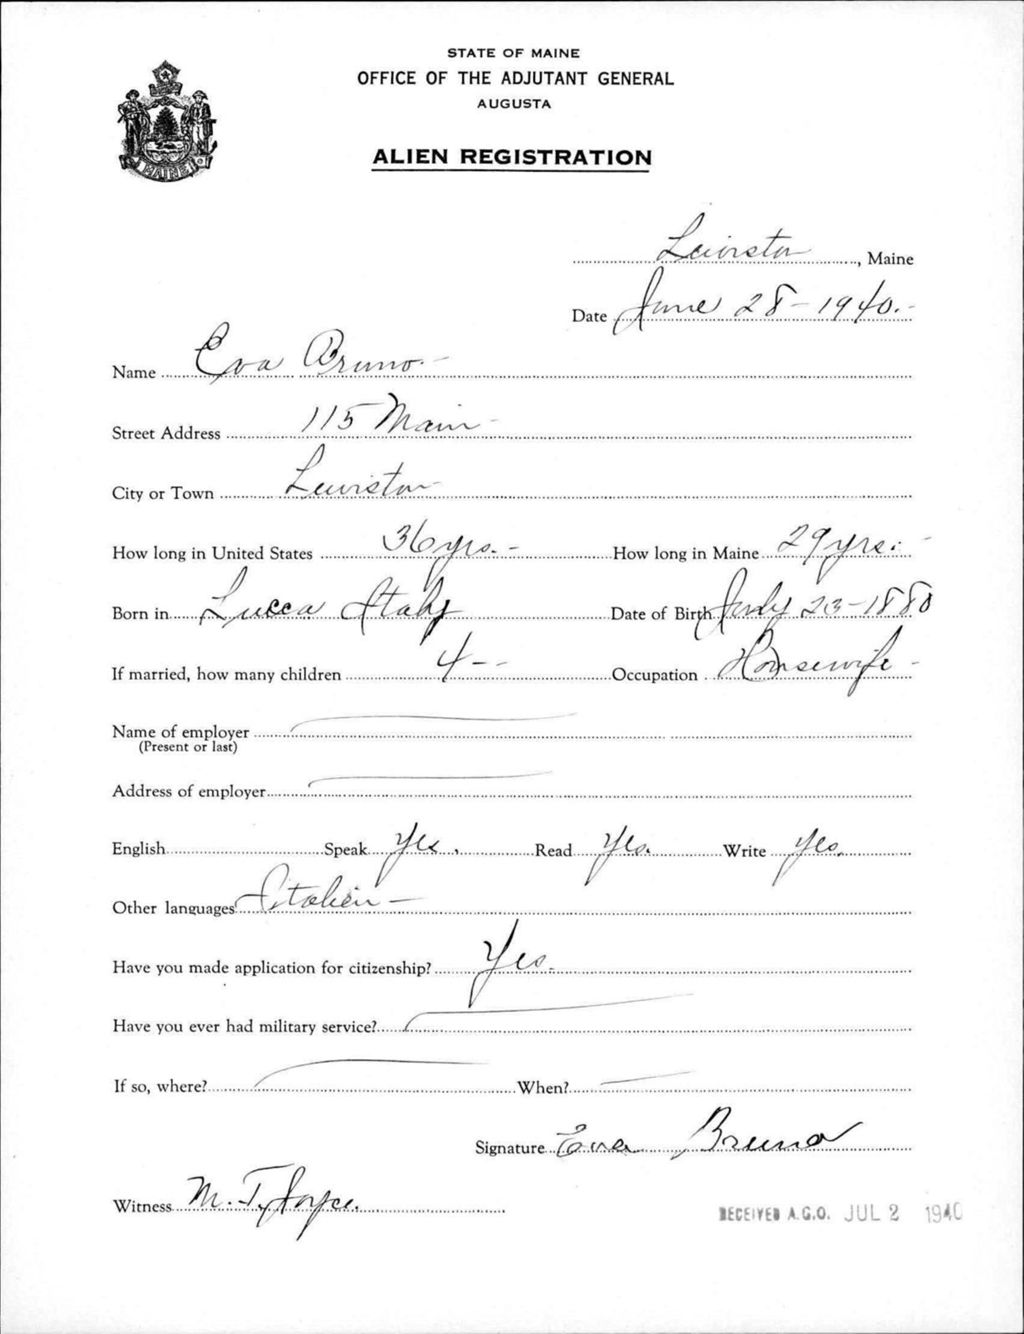 STATE OF MAINE
OFFICE OF THE ADJUTANT GENERAL
AUGUSTA
ALIEN REGISTRATION
MAINE
Lewiston, Maine
Date June 28-1940.-
Name Eva Bruno.-
Street Address 115 Main -
City or Town Lewiston
How long in United States 36 yrs. - How long in Maine 29 yrs. -
Born in Lucca Italy Date of Birth July 23-1880
If married, how many children 4 - - Occupation Housewife -
Name of employer
(Present or last)
Address of employer
English Speak Yes. Read Yes. Write Yes.
Other languages Italien -
Have you made application for citizenship? Yes.
Have you ever had military service?
If so, where? When?
Signature Eva Bruno
Witness M. T. Joyce.
RECEIVED A.G.O. JUL 2 1940